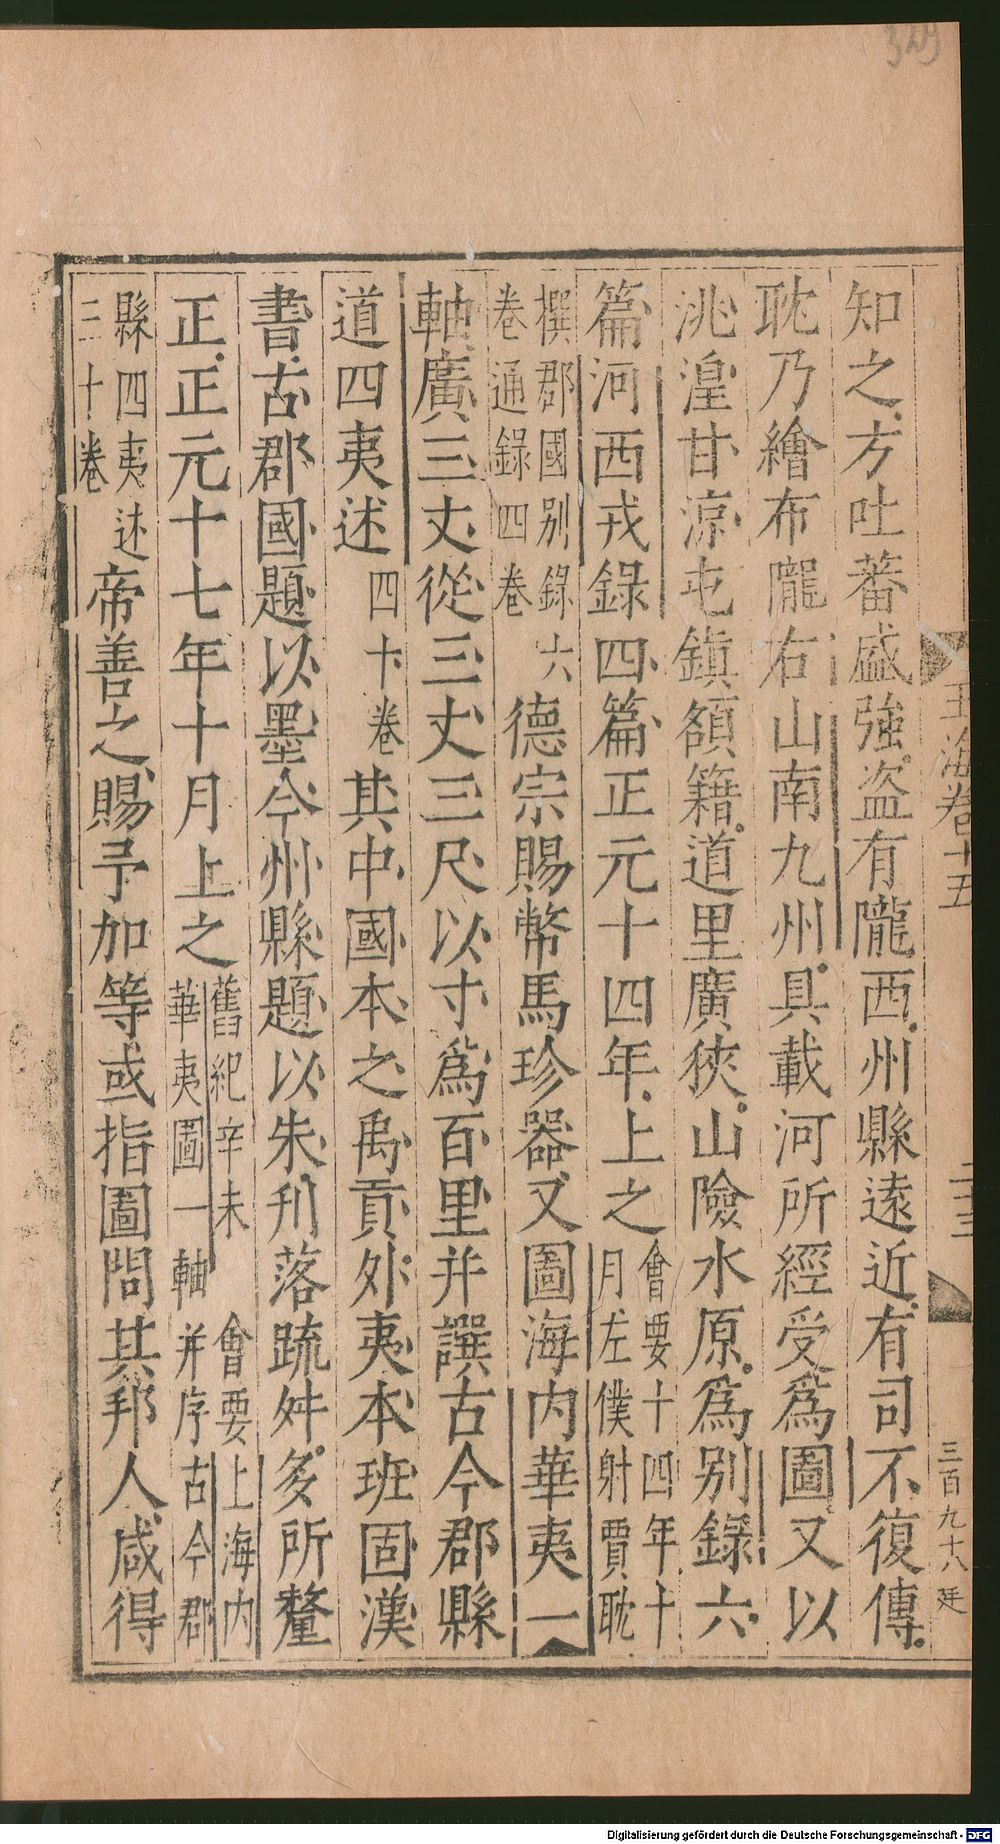 329
玉海卷十五
二十三
三百九十八 廷
知之方吐蕃盛強盜有隴西州縣遠近有司不復傳
耽乃繪布隴右山南九州具載河所經受為圖又以
洮湟甘涼屯鎮額籍道里廣狹山險水原為別錄六
篇河西戎錄四篇正元十四年上之會要十四年十月左僕射賈耽
撰郡國別錄六卷通錄四卷德宗賜幣馬珍器又圖海內華夷一
軸廣三丈從三丈三尺以寸為百里并譔古今郡縣
道四夷述四十卷其中國本之禹貢外夷本班固漢
書古郡國題以墨今州縣題以朱刋落疏舛多所釐
正正元十七年十月上之舊紀辛未 會要上海內華夷圖一軸并序古今郡
縣四夷述三十卷帝善之賜予加等或指圖問其邦人咸得
Digitalisierung gefördert durch die Deutsche Forschungsgemeinschaft - DFG